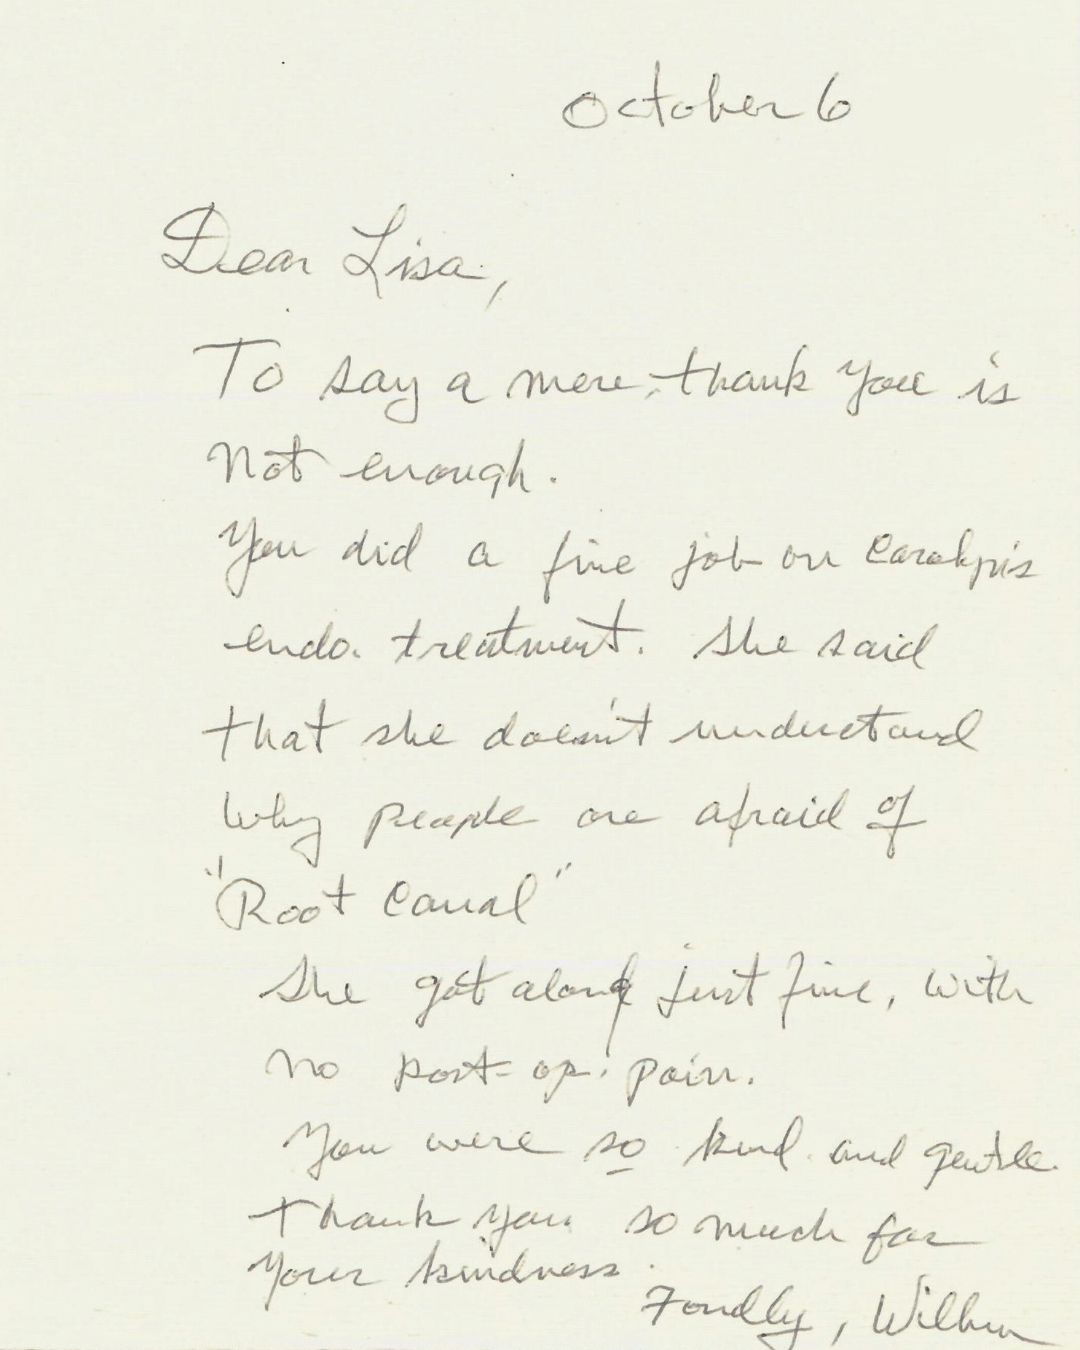 October 6
Dear Lisa,
To say a mere, thank you is
Not enough.
You did a fine job on
endo. treatment. She said
that she doesn't understand
why people are afraid of
"Root Canal"
She got along just fine, with
no post-op. pain.
You were so kind and gentle.
Thank you so much for
your kindness.
Fondly, Wilbur